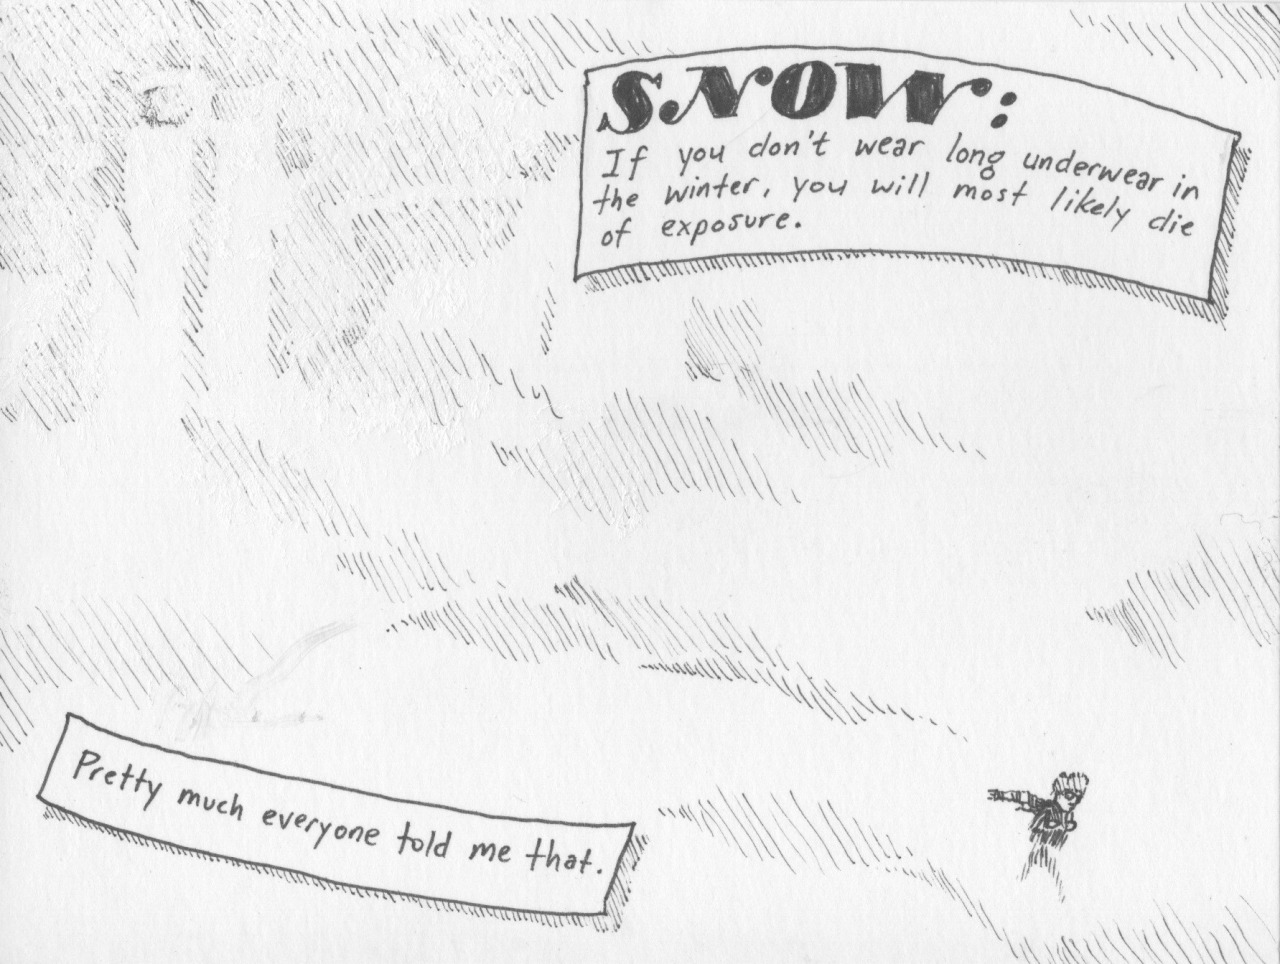 SNOW:
If you don't wear long underwear in
the winter, you will most likely die
of exposure.
Pretty much everyone told me that.